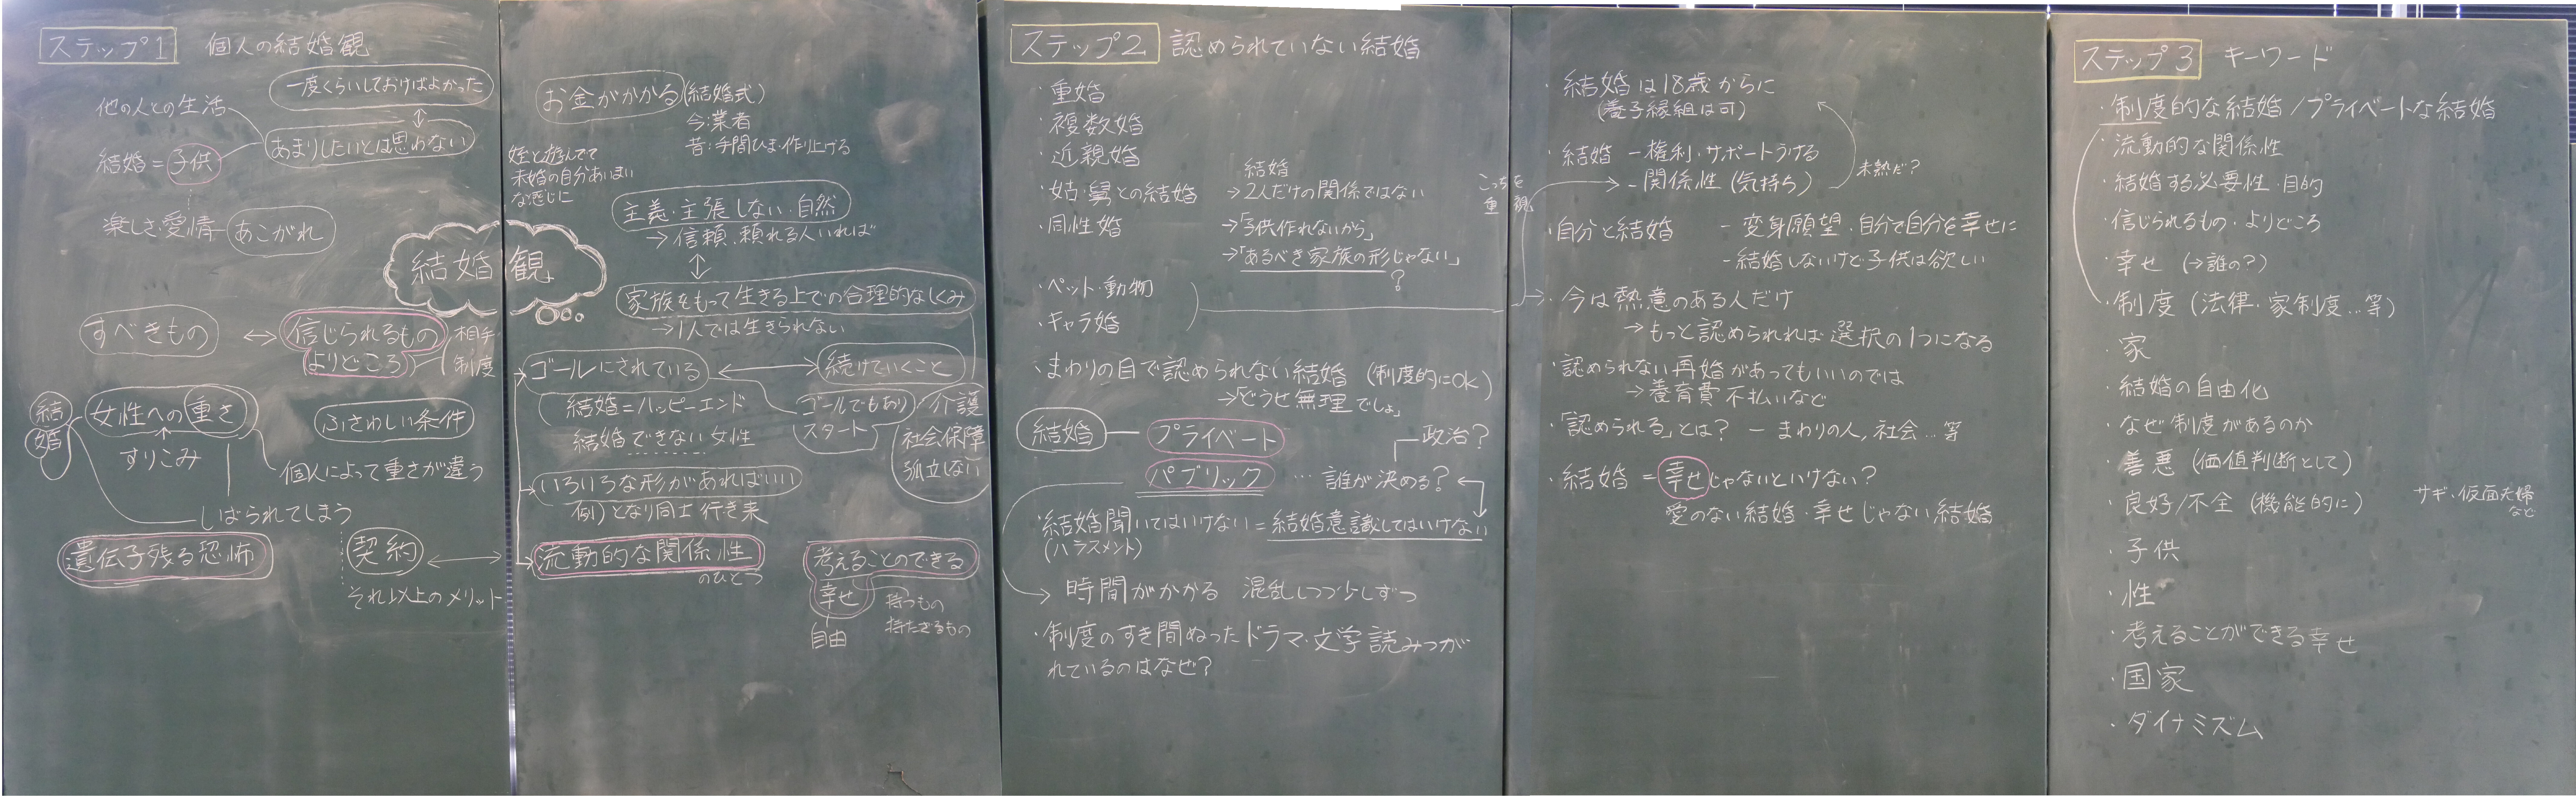 ステップ1 個人の結婚観
一度くらいしておけばよかった
他の人との生活
あまりしたいとは思わない
結婚=子供
楽しさ・愛情 あこがれ
結婚観
すべきもの ↔ 信じられるもの
よりどころ
相手
制度
結婚
女性への重さ
すりこみ
ふさわしい条件
個人によって重さが違う
しばられてしまう
遺伝子残る恐怖
契約
それ以上のメリット
お金がかかる (結婚式)
今:業者
昔:手間ひま・作り上げる
姪と遊んでて
未婚の自分あいまい
な感じに
主義・主張しない・自然
→信頼、頼れる人いれば
家族をもって生きる上での合理的なしくみ
→1人では生きられない
ゴールにされている ↔ 続けていくこと
結婚=ハッピーエンド
結婚できない女性
ゴールでもあり
スタート
介護
社会保障
孤立しない
いろいろな形があればいい
例)となり同士 行き来
流動的な関係性
のひとつ
考えることのできる
幸せ
自由
持つもの
持たざるもの
ステップ2 認められていない結婚
・重婚
・複数婚
・近親婚
・姑・舅との結婚
結婚
→2人だけの関係ではない
・同性婚 →「子供作れないから」
→「あるべき家族の形じゃない」
?
・ペット・動物
・キャラ婚
・まわりの目で認められない結婚 (制度的にOK)
→「どうせ無理でしょ」
結婚 — プライベート
パブリック … 誰が決める?
政治?
・結婚聞いてはいけない=結婚意識してはいけない
(ハラスメント)
→ 時間がかかる 混乱しつつ少しずつ
・制度のすき間ぬったドラマ・文学読みつが
れているのはなぜ?
・結婚は18歳からに
(養子縁組は可)
・結婚 -権利・サポートうける
-関係性(気持ち)
未熟だ?
こっちを
重視
・自分と結婚 -変身願望・自分で自分を幸せに
-結婚しないけど子供は欲しい
・今は熱意のある人だけ
→もっと認められれば選択の1つになる
・認められない再婚があってもいいのでは
→養育費不払いなど
・「認められる」とは? -まわりの人、社会…等
・結婚=幸せじゃないといけない?
愛のない結婚・幸せじゃない結婚
ステップ3 キーワード
・制度的な結婚/プライベートな結婚
・流動的な関係性
・結婚する必要性・目的
・信じられるもの・よりどころ
・幸せ (→誰の?)
・制度(法律・家制度…等)
・家
・結婚の自由化
・なぜ制度があるのか
・善悪(価値判断として)
・良好/不全(機能的に)
サギ・仮面夫婦
など
・子供
・性
・考えることができる幸せ
・国家
・ダイナミズム